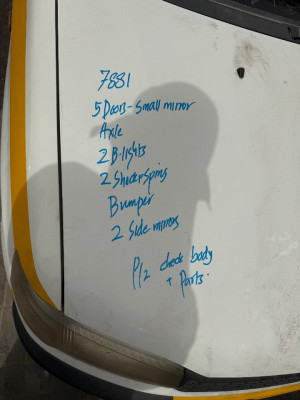 7881
5 Doors - small mirror
Axle
2 B-lights
2 Shockersprins
Bumper
2 Side mirrors
Plz check body
+ Parts.